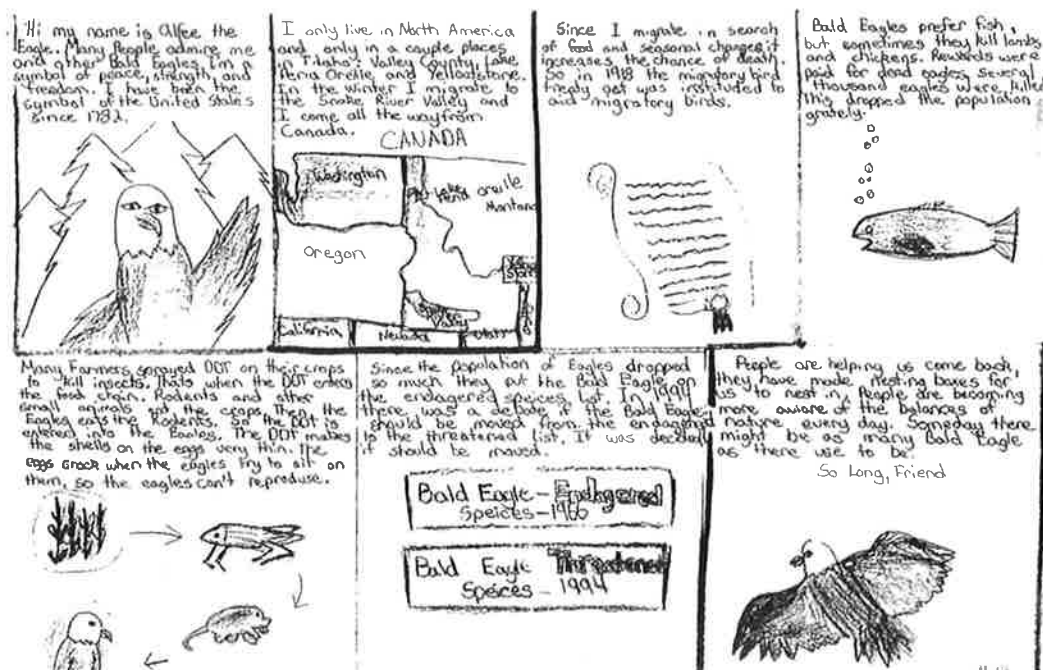 Hi my name is Alfee the
Eagle. Many People admire me
and other Bald Eagles. I'm a
symbol of peace, strength, and
freedom. I have been the
symbol of the United States
since 1782.
I only live in North America
and only in a couple places
in Idaho: Valley County, Lake
Peria Oreille, and Yellowstone.
In the winter I migrate to
the Snake River Valley and
I come all the way from
Canada.
CANADA
Washington
Lake
Peria
Oreille
Montana
Oregon
Valley
California
Nevada
Utah
Since I migrate in search
of food and seasonal changes it
increases the chance of death.
So in 1918 the migratory bird
treaty act was instituted to
aid migratory birds.
Bald Eagles prefer fish,
but sometimes they kill lambs
and chickens. Rewards were
paid for dead eagles, several
thousand eagles were killed
this dropped the population
grately.
Many Farmers sprayed DDT on their crops
to kill insects. Thats when the DDT enters
the food chain. Rodents and other
small animals eat the crops. Then the
Eagles eats the Rodents. So the DDT is
entered into the Eagles. The DDT makes
the shells on the eggs very thin. The
eggs crack when the eagles try to sit on
them, so the eagles can't reproduse.
Since the population of Eagles dropped
so much they put the Bald Eagle on
the endagered speices list. In 1994
there was a debate if the Bald Eagle
should be moved from the endagered
to the threatened list. It was decided
it should be moved.
Bald Eagle - Endagered
Speices - 1966
Bald Eagle Threatened
Speices - 1994
People are helping us come back,
they have made nesting boxes for
us to nest in. People are becoming
more aware of the balances of
nature every day. Someday there
might be as many Bald Eagle
as there use to be.
So Long, Friend